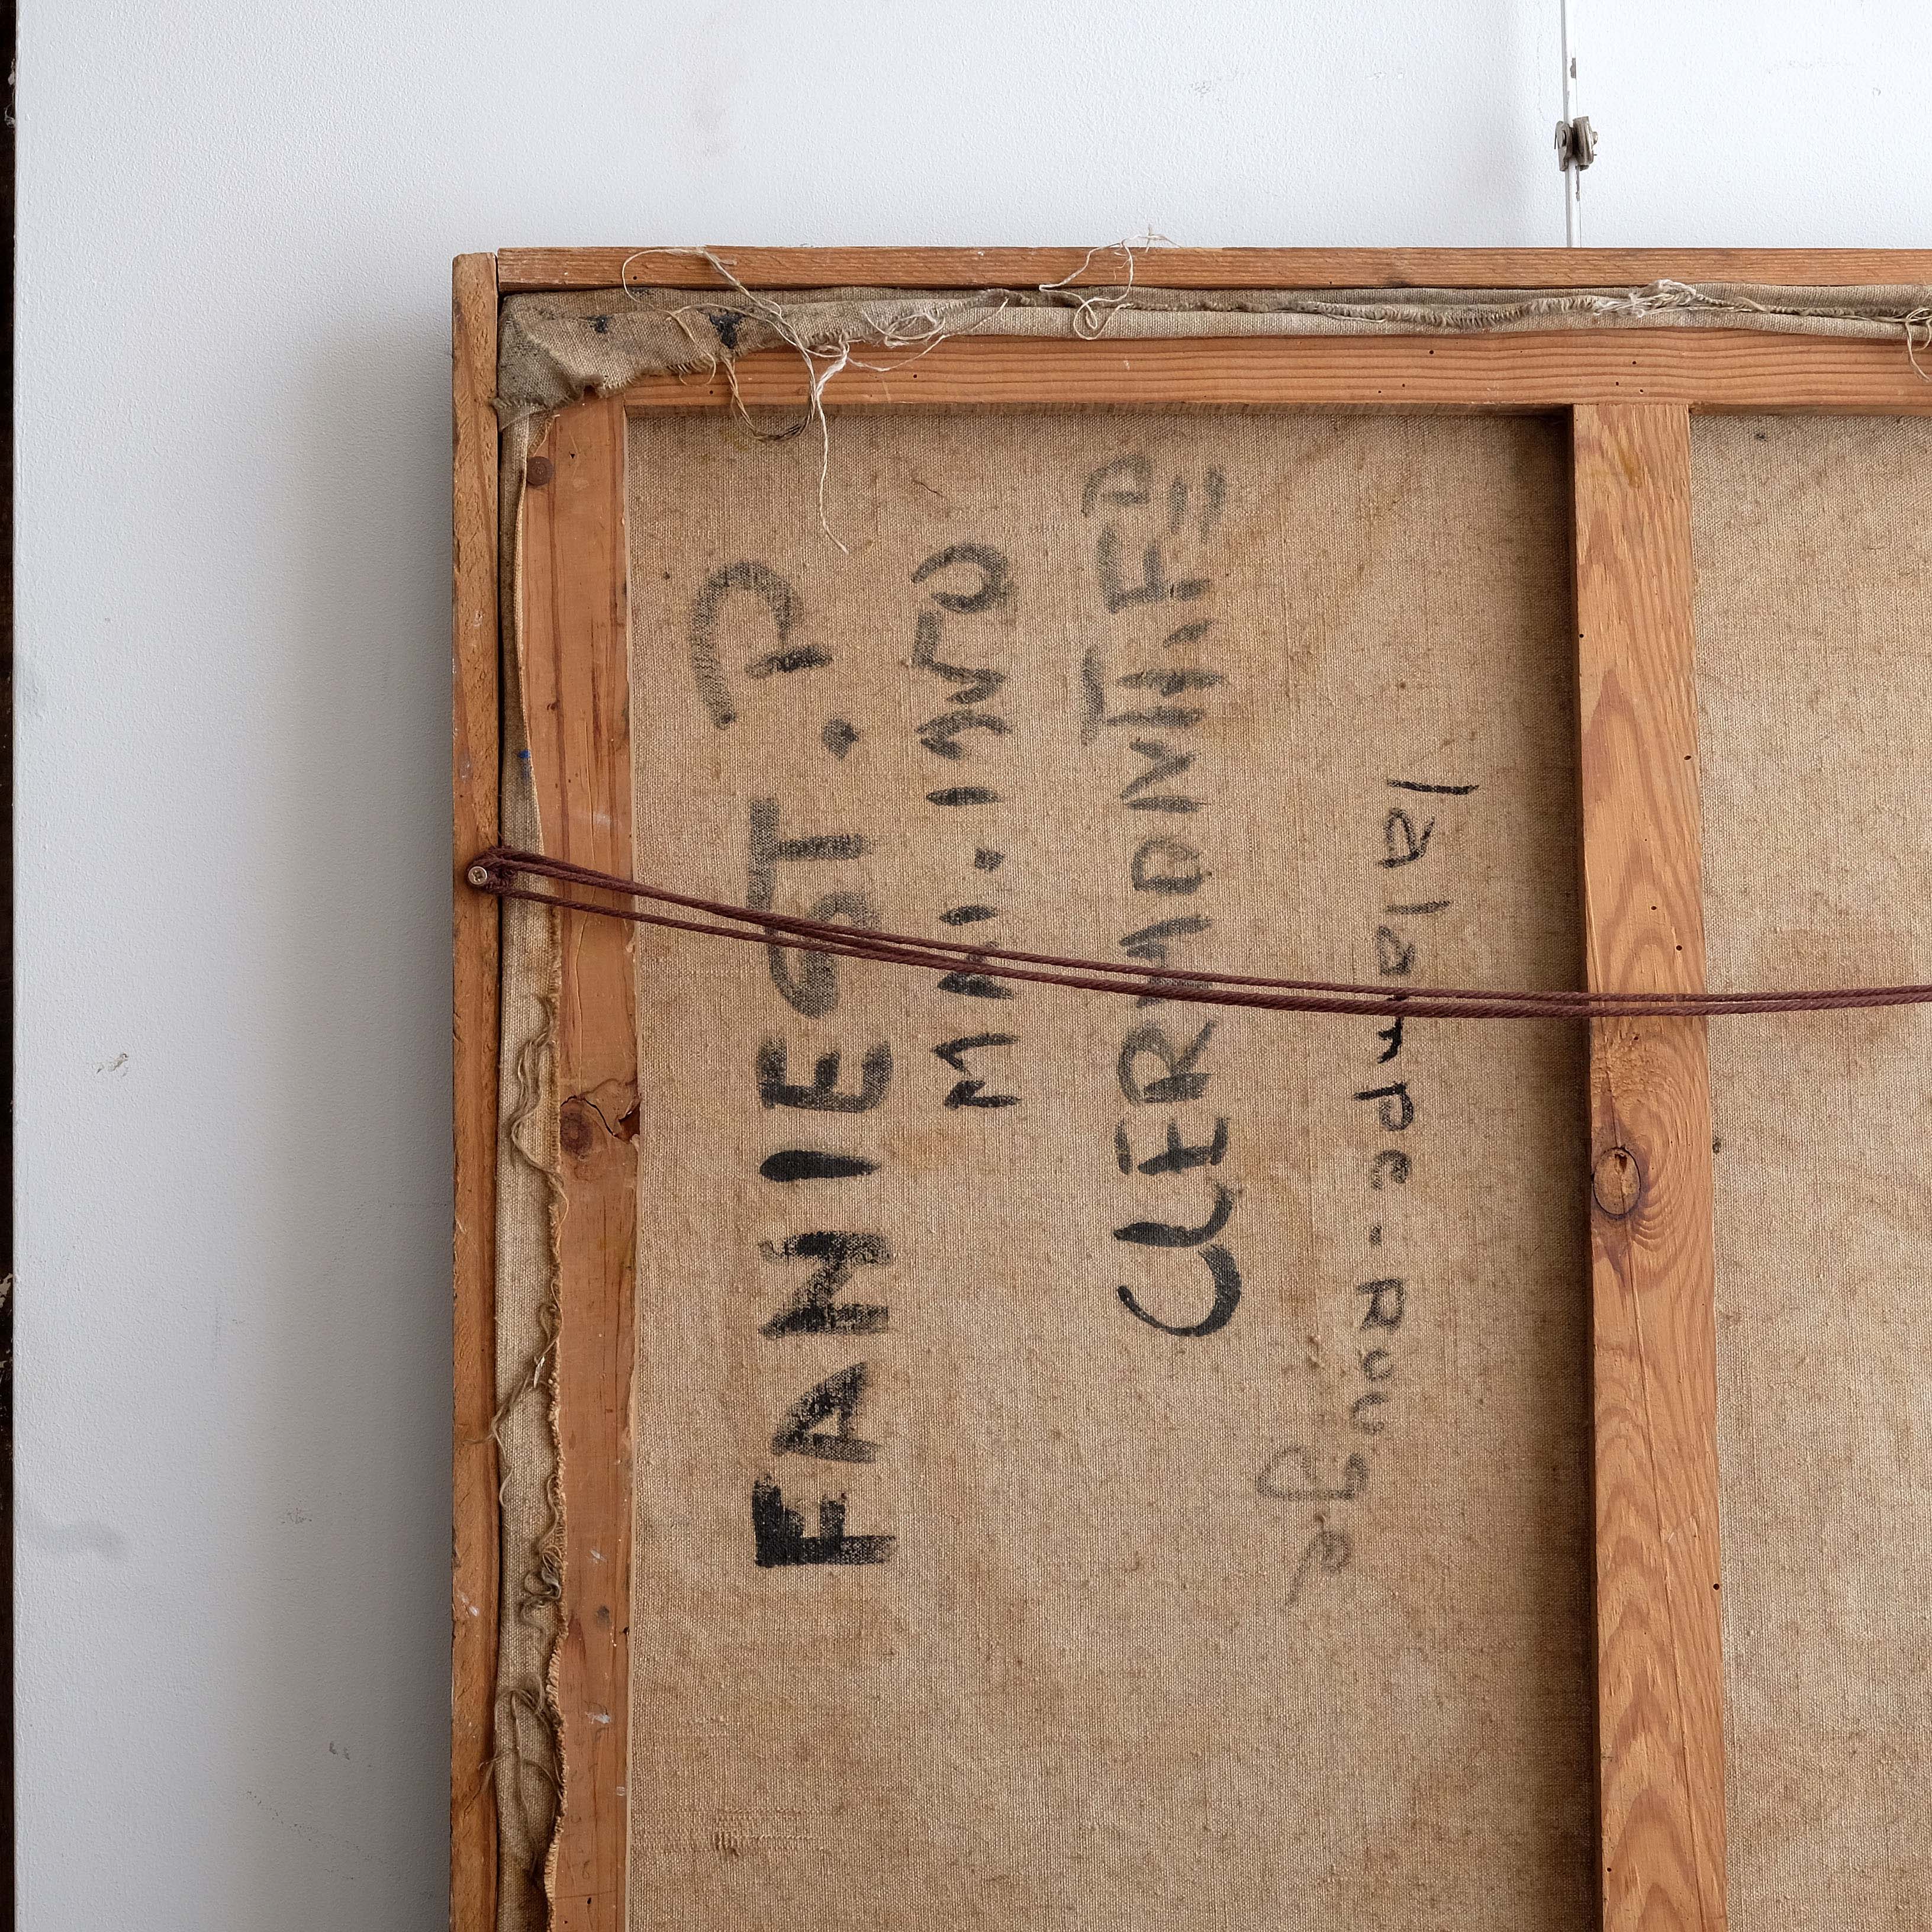 FANIEST.P
MAI.1950
CLERMONT.FD
la lampe - Rouge